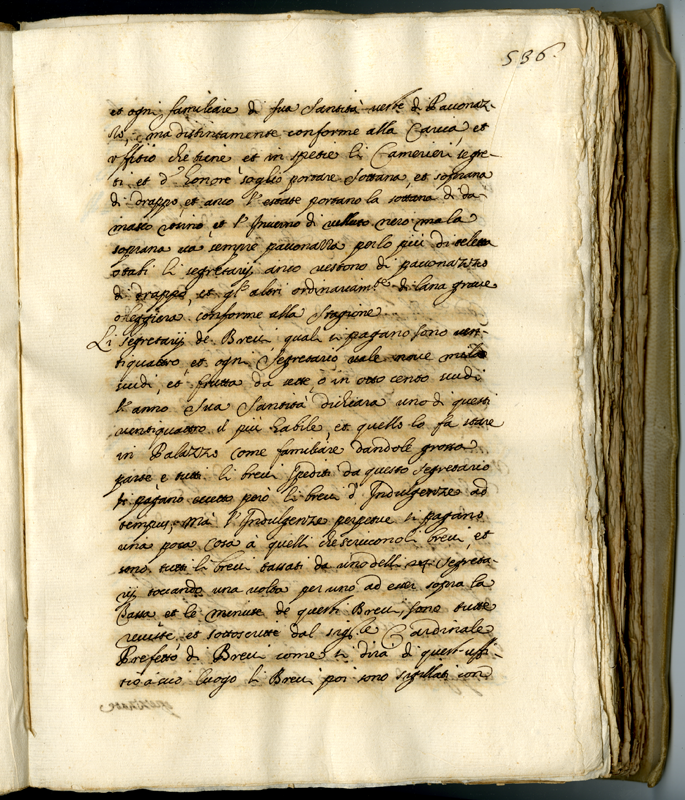 536.
et ogni familiare di sua Santità veste di Pauonaz-
zo, ma distintamente conforme alla Carica, et
offitio che tiene et in spetie li Camerieri segre-
ti et d'honore soglio portare sottana, et soprana
di drappo, et anco l'estate portano la sottana di da
masco et l'Inuerno di velluto nero ma la
soprana va sempre pauonazza per lo più di teletta
o tali li segretarij anco vestono di pauonazzo
di drappo, et gl'altri ordinariam.te di lana graue
o leggiera conforme alla stagione.
Li segretarij de Breui quali si pagano sono ven-
tiquattro, et ogni segretario vale noue mila
scudi, et frutta da sette o in otto cento scudi
l'anno Sua Santità dichiara uno di questi
ventiquattro il più habile, et quello lo fa stare
in Palazzo come familiare dandole grossa
parte e tutti li breui spediti da questo segretario
si pagano eccetto però li breui d'Indulgenze ad
tempus, mà l'Indulgenze perpetue si pagano
una poca cosa à quelli che scriuono li breui, et
sono tutti li breui tassati da uno delli 24 segreta-
rij toccando una volta per uno ad esser sopra la
tassa et le minute de questi Breui, sono tutte
reuiste, et sottoscritte dal sig.re Cardinale
Prefetto di Breui come si dirà di quest'uffi-
tio à suo luogo li Breui poi sono sigillati con